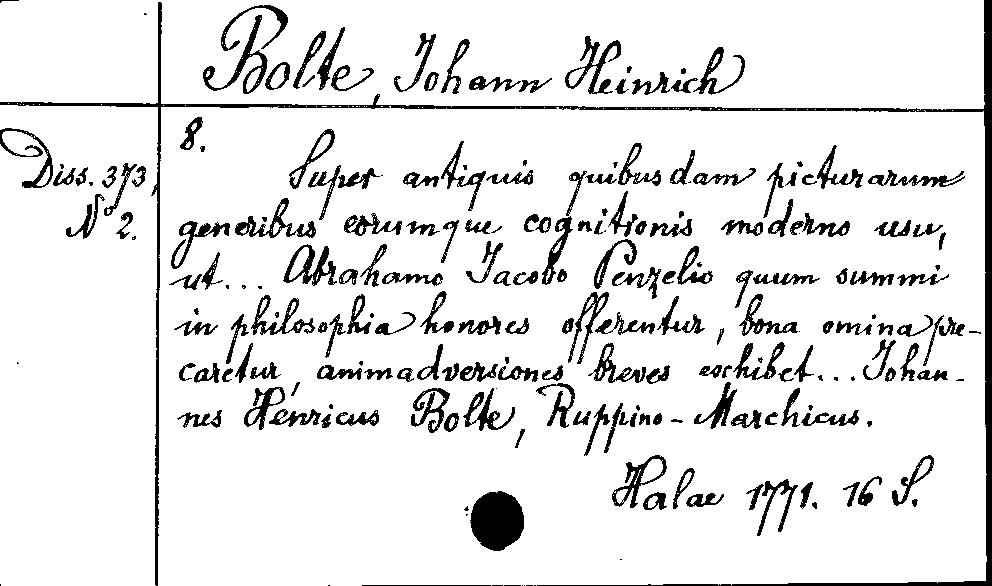 Bolte, Johann Heinrich
8.
Diss. 373,
No 2.
Super antiquis quibusdam picturarum
generibus eorumque cognitionis moderno usu,
ut... Abrahamo Jacobo Penzelio quum summi
in philosophia honores offerentur, bona omina pre-
caretur, animadversiones breves exhibet... Johan-
nes Henricus Bolte, Ruppino-Marchicus.
Halae 1771. 16 S.